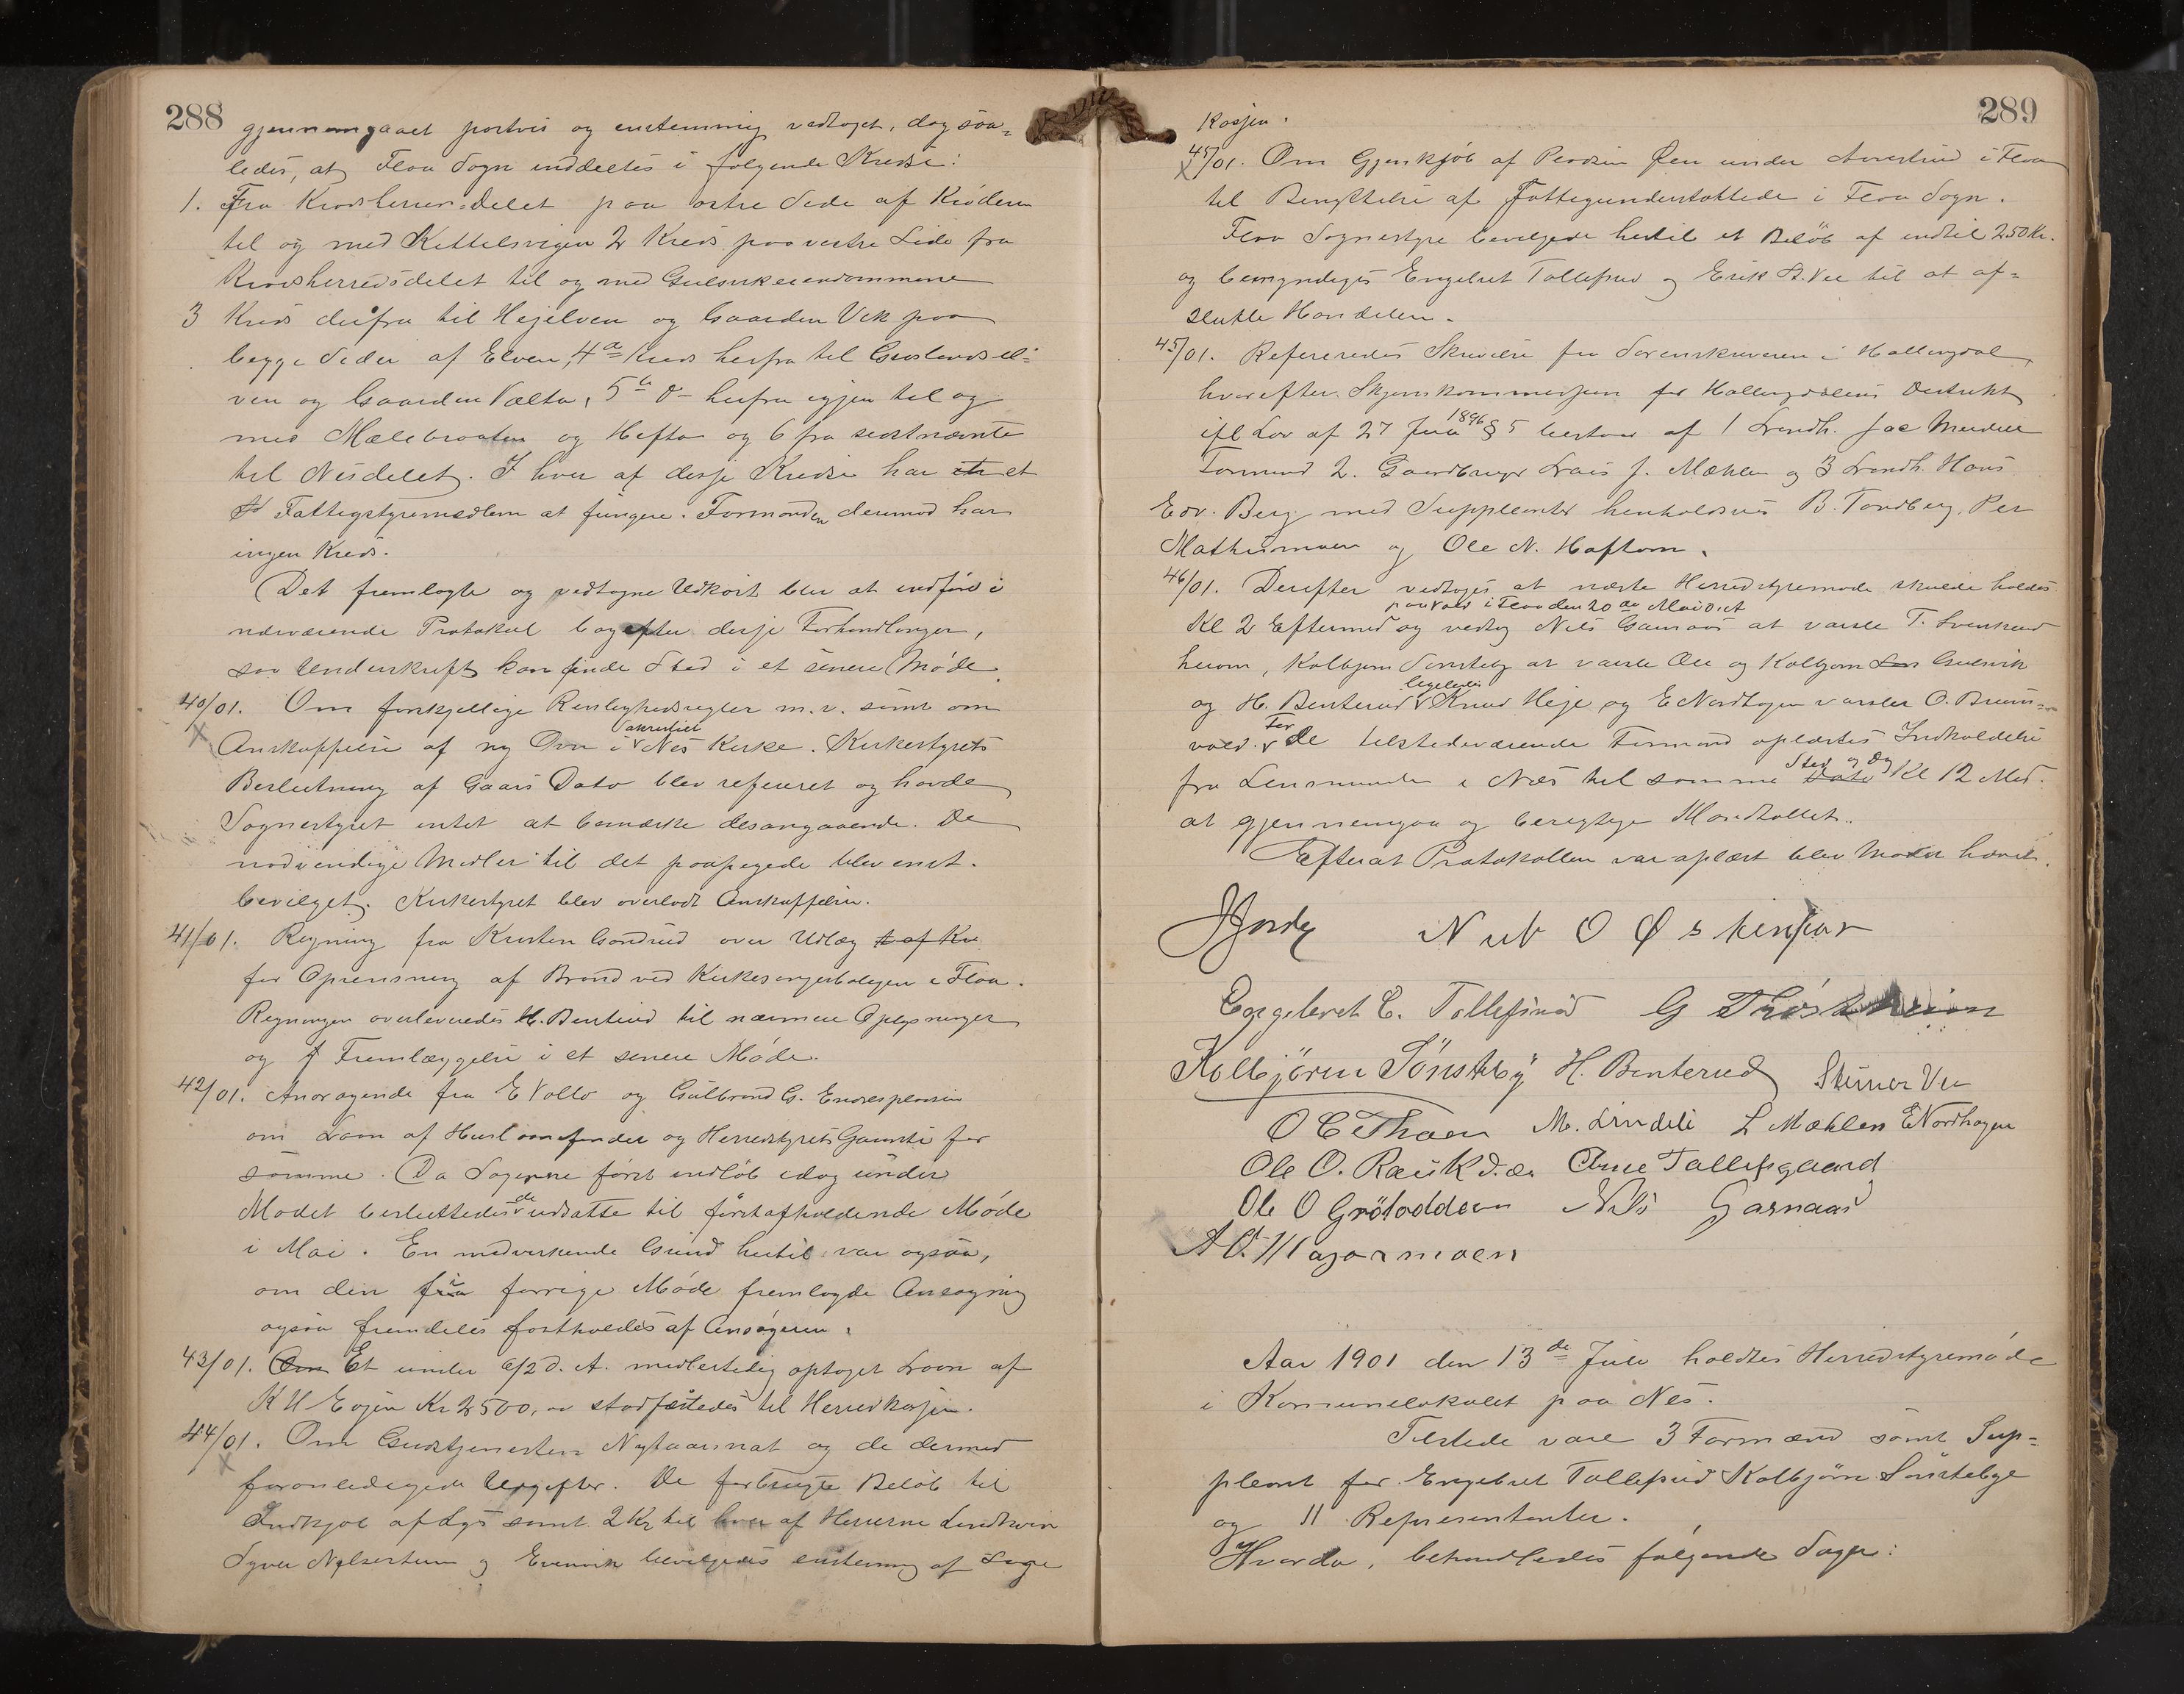 288
gjennemgaaet portvis og enstemmig vedtaget, dog saa-
ledes, at Flaa Sogn inddeltes i følgende Kredse:
1. Fra Krodsherred-delet paa østre Side af Krøderen
til og med Kittelsvigen 2 Kreds paa vestre Side fra
Krodsherredsdelet til og med Gulsvikeiendommene
3 Kreds derfra til Hejelven og Gaarden Vik paa
begge Sider af Elven, 4de Kreds herfra til
ven og Gaarden Vælta, 5te D- herfra igjen til og
med Mælebraaten og Hefta og 6 fra sidstnævnte
til Nesdelet. I hver af disse Kredse har et
Fattigstyremedlem at fungere. Formanden derimod har
ingen Kreds.
Det fremlagte og vedtagne Udkast blev at indføre i
nærværende Protokol bagefter disse Forhandlinger,
saa Underskrift kan finde Sted i et senere Møde.
40/01. Om forskjellige Renlighedsregler m.v. samt om
Anskaffelse af ny Ovn i Nes Kirke. Kirkestyrets
Beslutning af Gaars Dato blev refereret og havde
Sognestyret intet at bemærke desangaaende. De
nødvendige Midler til det paapegede blev enst.
bevilget. Kirkestyret blev overladt Anskaffelsen.
41/01. Regning fra Kristen Gondrud over Udlæg
for Oprensning af Brønd ved Kirkesangerboligen i Flaa.
Regningen overleveredes H. Benterud til nærmere Oplysninger
og Fremlæggelse i et senere Møde.
42/01. Andragende fra E Vollo og Gulbrand G.
om Laan af Husl og Herredstyrets Garanti for
samme. Da Sagerne først indløb idag under
Mødet besluttedes de udsatte til førstafholdende Møde
i Mai. En medvirkende Grund hertil var ogsaa,
om den i forrige Møde fremlagde Ansøgning
ogsaa fremdeles fastholdes af Ansøgeren.
43/01. Et under 6/2 d. A. midlertidig optaget Laan af
K H Kr 2500, stadfæstedes til Herredkassen.
44/01. Om Gudstjenesten Nytaarsnat og de dermed
foranledigede Udgifter. De forbrugte Beløb til
Indkjøb af Lys samt 2 Kr til hver af Herrerne
og bevilgedes enstemmig af
289
Kassen.
45/01. Om Gjenkjøb af Pladsen Øen under i Flaa
til Benyttelse af Fattigunderstøttede i Flaa Sogn.
Flaa Sognestyre bevilgede hertil et Beløb af indtil 250 Kr.
og bemyndiges Engebret Tollefsrud og Erik St. Vee til at af-
slutte Handelen.
45/01. Refereredes Skrivelse fra Sorenskriveren i Hallingdal,
hvorefter Skjønskommissjon for Hallingdalens Distrikt
ifl Lov af 27 Juni 1896 § 5 bestaar af 1 Lendh.
Formand 2. Gaardbruger Lars J. Mæhlen og 3 Lendh. Hans
Edv. Berg med Suppleanter henholdsvis B. Tandberg, Per
Mathismoen og Ole N. Haftorn.
46/01. Derefter vedtoges at næste Herredstyremøde skulde holdes
paa Vold i Flaa den 20de Mai d. A
Kl 2 Eftermid og vedtog Nils Garnaas at varsle T.
herom, Kolbjørn Sønsteby at varsle Ole og Kolbjørn Gulsvik
og H. Benterud ligeledes Knud Heje og E Nordhagen varsler O. Bruns-
vold. For de tilstedeværende Formænd oplæstes Indkaldelse
fra Lensmanden i Næs til samme Sted og Dag Kl 12 Mid.
at gjennemgaa og berigtige Mandtallet.
Efterat Protokollen var oplæst blev Mødet hævet.
JJorde Nub O Øskinhar
Engebret E. Tollefsrud G Trøstheim
Kolbjørn Sönsteby H. Benterud Steiner Vee
O E Thoen M. Lindeli L Mæhlen E Nordhagen
Ole O. Rauk Arne Tollefsgaard
Ole O Grötoddeen Nils Garnaas
A O. Hagarmoen
Aar 1901 den 13de Juli holdtes Herredstyremøde
i Komunelokalet paa Nes.
Tilstede vare 3 Formænd samt Sup-
pleant for Engebret Tollefsrud Kolbjørn Sønstebye
og 11 Repræsentanter.
Hvorda, behandledes følgende Sager: